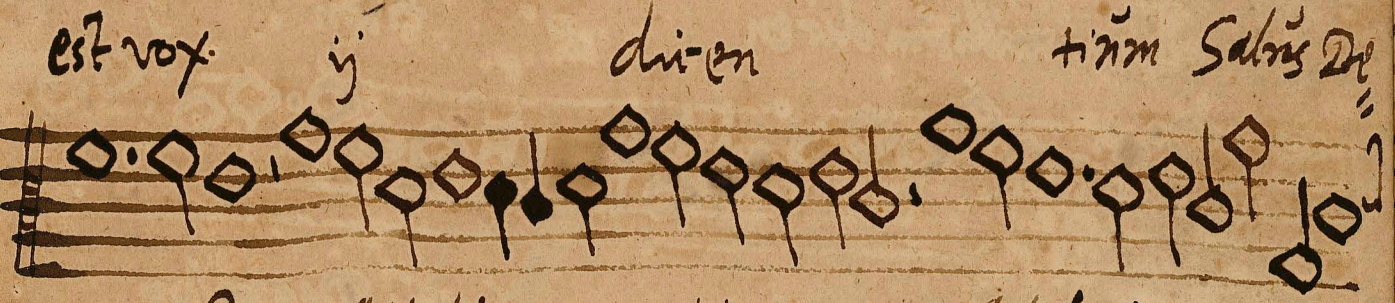 est vox. ij dicen tiũm Salũs De=